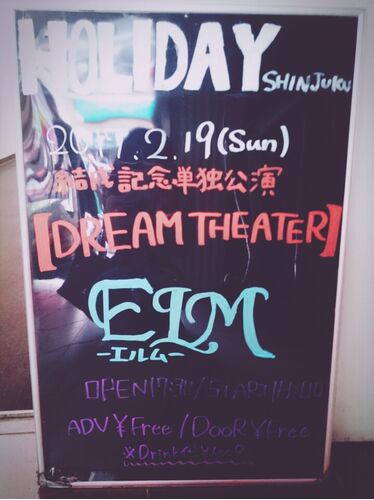 HOLIDAY SHINJUKU
2017.2.19(Sun)
結成記念単独公演
【DREAM THEATER】
ELM
-エルム-
OPEN17:30/START18:00
ADV ¥Free/DOOR ¥Free
※Drink代